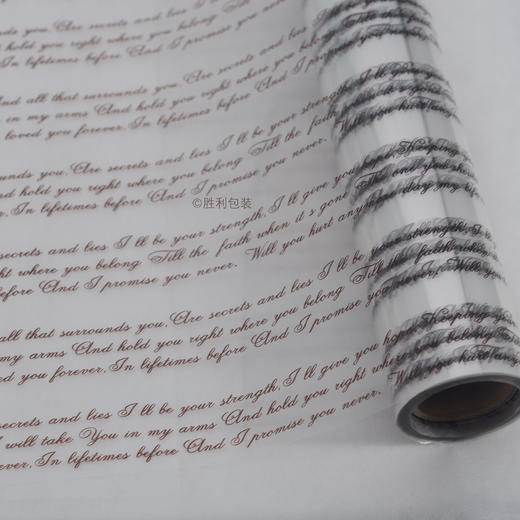 nds you. Are secrets and lies I
hold you right where you belong Till
In lifetimes before And I promise you never.
And all that surrounds you. Are secrets and lies I
in my arms And hold you right where you belong
loved you forever. In lifetimes before And I promise
unds you. Are secrets and lies I ll be your strength. I ll
And hold you right where you belong Till the faith
er. In lifetimes before And I promise you never. Will you hurt
secrets and lies I ll be your strength. I ll give you hope. Keeping
right where you belong Till the faith when it s gone The
before And I promise you never. Will you hurt anymore day my
©胜利包装
all that surrounds you. Are secrets and lies I ll be your strength
my arms And hold you right where you belong Till the faith
ed you forever. In lifetimes before And I promise you never. Will you
secrets and lies I ll be your strength. I ll give you hope. Keeping
I will take You in my arms And hold you right where you belong
ever. In lifetimes before And I promise you never. Will you hurt